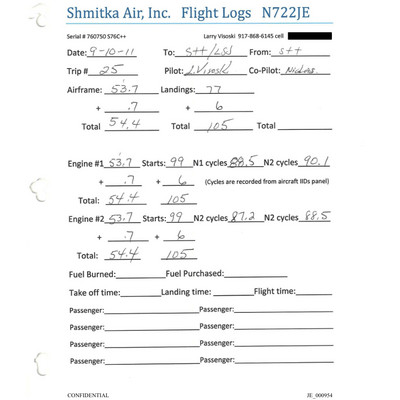 Shmitka Air, Inc. Flight Logs N722JE
Serial # 760750 S76C++ Larry Visoski 917-868-6145 cell
Date: 9-10-11 To: STT/LSJ From: STT
Trip # 25 Pilot: L.Visoski Co-Pilot:
Airframe: 53.7 Landings: 77
+ .7 + 6
Total 54.4 Total 105 Total
Engine #1 53.7 Starts: 99 N1 cycles 88.5 N2 cycles 90.1
+ .7 + 6 (Cycles are recorded from aircraft IIDs panel)
Total: 54.4 105
Engine #2 53.7 Starts: 99 N1 cycles 87.2 N2 cycles 88.5
+ .7 + 6
Total: 54.4 105
Fuel Burned: Fuel Purchased:
Take off time: Landing time: Flight time:
Passenger: Passenger:
Passenger: Passenger:
Passenger: Passenger:
Passenger: Passenger:
CONFIDENTIAL JE_000954